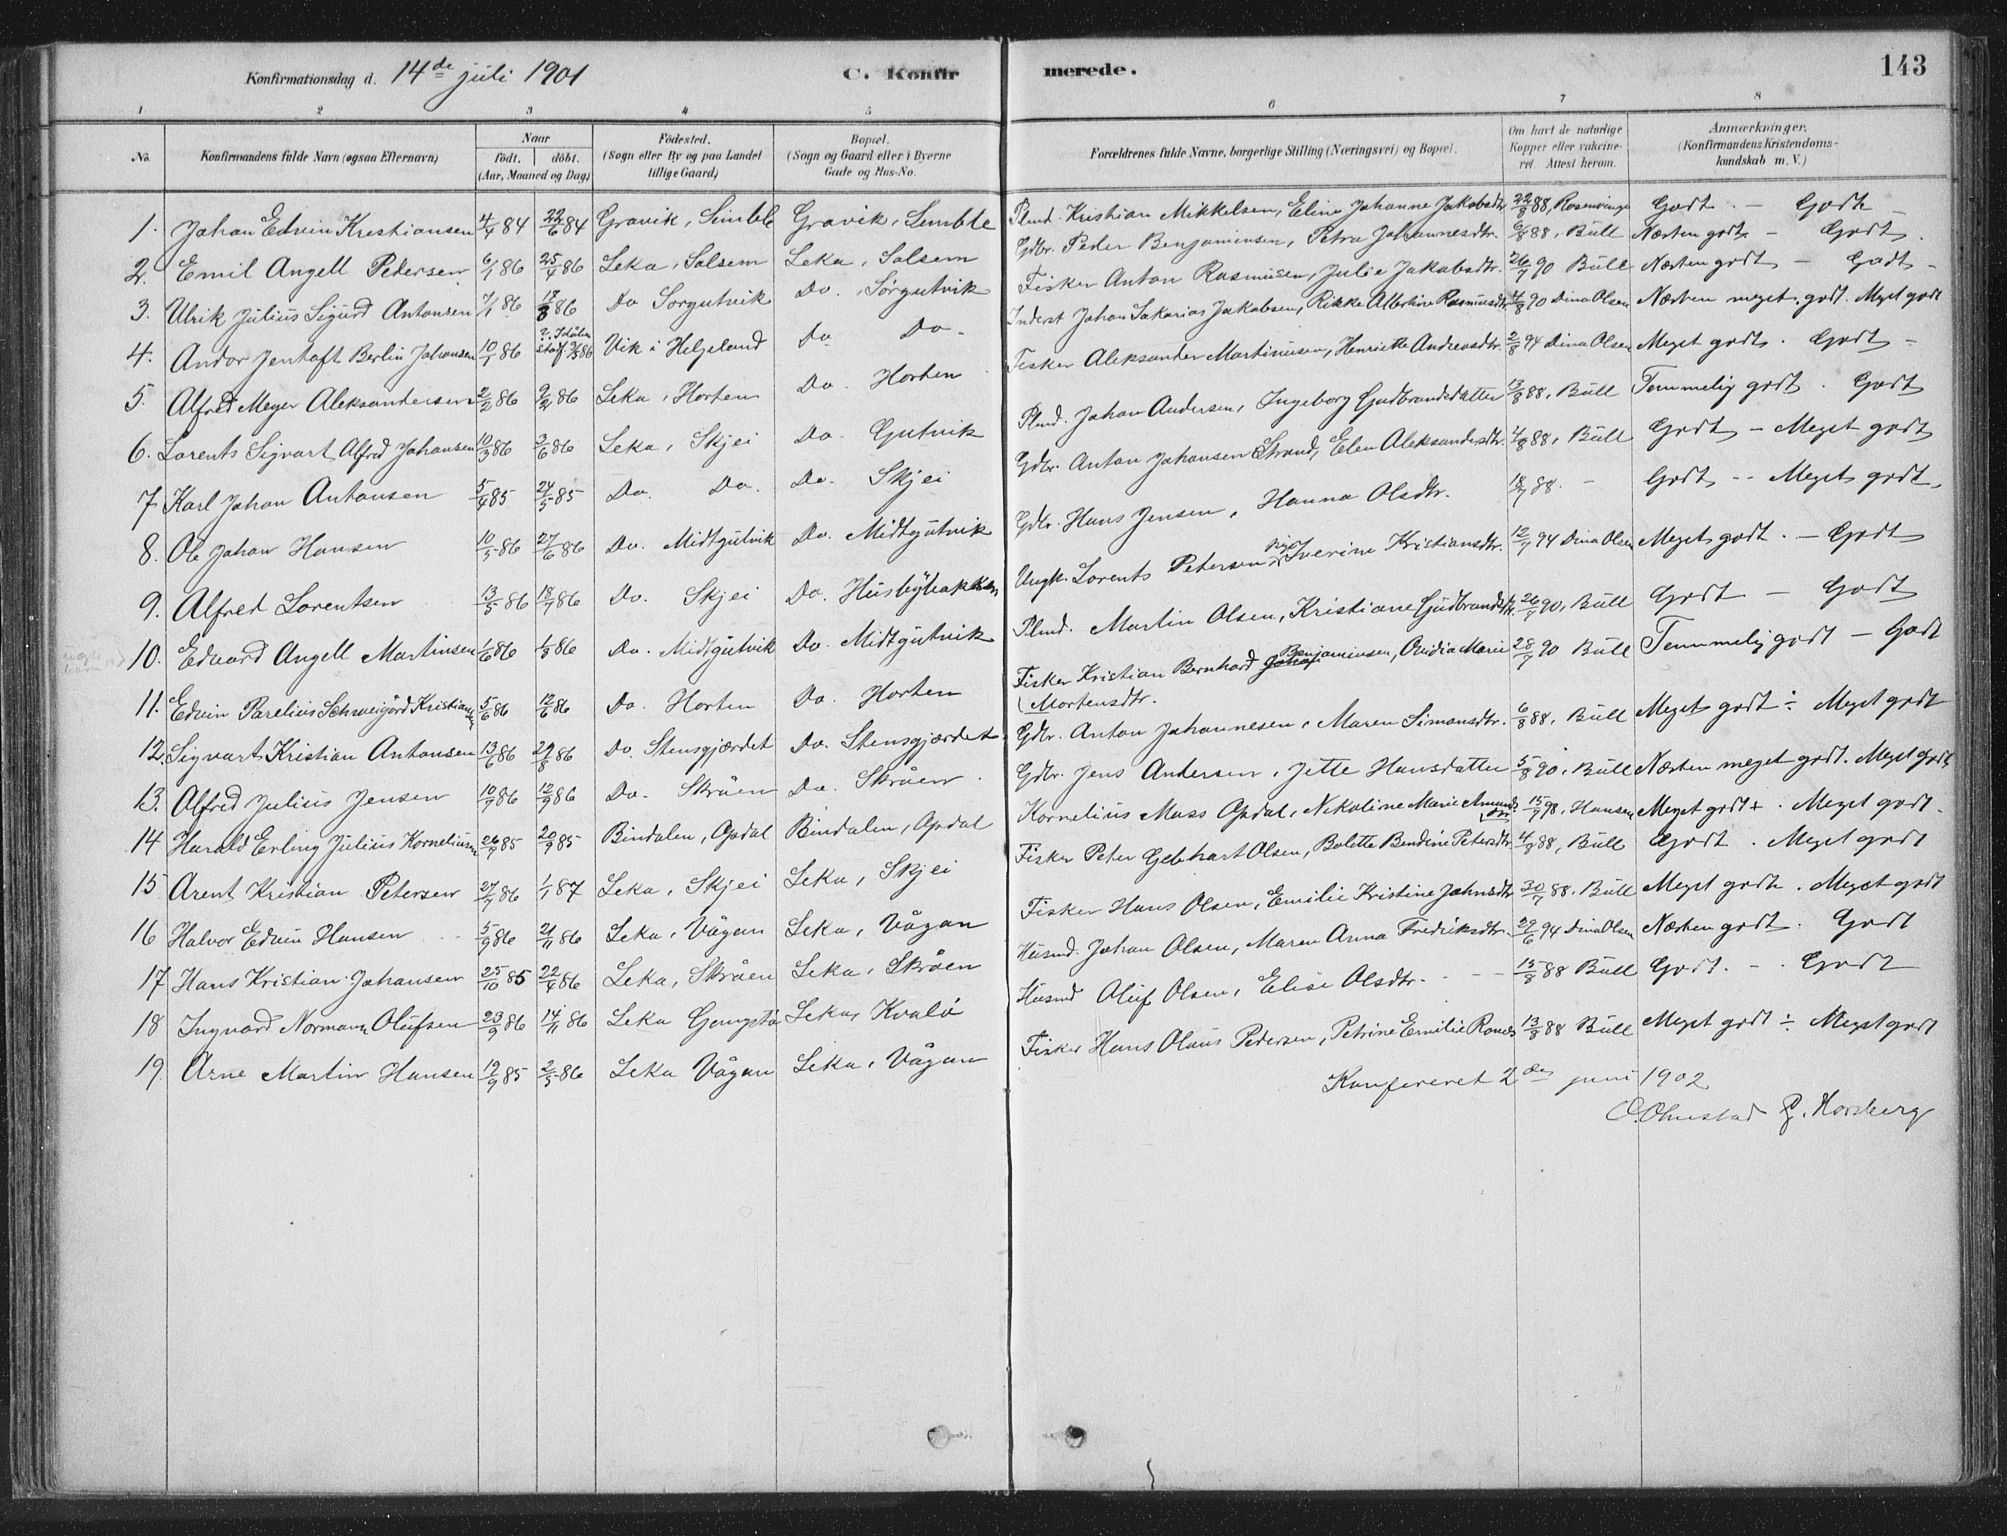 Konfirmationsdag d. 14de juli 1901 C. Konfirmerede. 143
1 2 3 4 5 6 7 8
No. Konfirmandens fulde Navn (ogsaa Efternavn) Naar født. døbt. (Aar, Maaned og Dag) Fødested. (Sogn eller By og paa Landet tillige Gaard) Bopæl. (Sogn og Gaard eller i Byerne Gade og Hus-No. Forældrenes fulde Navne, borgerlige Stilling (Næringsvei) og Bopæl. Om havt de naturlige Kopper eller vakcineret. Attest herom. Anmærkninger. (Konfirmandens Kristendomskundskab m. V.)
1. Johan Edvin Kristiansen 4/4 84 22/6 84 Gravik, Semble Gravik, Semble Plmd. Kristian Mikkelsen, Eline Johanne Jakobsdtr. 22/8 88, Rosenvinge Godt. - Godt
2. Emil Angell Pedersen 6/1 86 25/4 86 Leka, Solsem Leka, Solsem Gdbr. Peder Benjaminsen, Petra Johannesdtr. 6/8 88, Bull Næsten godt - Godt.
3. Ulrik Julius Sigurd Antonsen 7/1 86 18/3 86 Do Sørgutvik Do. Sørgutvik Fisker Anton Rasmusen, Julie Jakobsdtr. 26/7 90 Bull Næsten godt - Godt -
4. Andor Jentoft Berlin Johansen 10/1 86 Vik i Helgeland Do Do- Inderst Johan Sakarias Jakobsen, Rikke Albertine Rasmusdtr. 4/8 90 Dina Olsen Næsten meget godt. Meget godt
5. Alfred Meyer Aleksandersen 2/2 86 9/2 86 Leka, Horten Do. Horten Fisker Aleksander Martinusen, Henriette Andreasdtr. 2/8 94 Dina Olsen Meget godt. Godt -
6. Lorents Sigvart Alfred Johansen 10/3 86 3/6 86 Leka, Skjei Do. Gutvik Plmd. Johan Andersen, Ingeborg Gudbrandsdatter 13/8 88, Bull Temmelig godt. Godt
7 Karl Johan Antonsen 5/4 85 24/5 85 Do. Do. Do. Skjei Gdbr. Anton Johansen Strand, Elen Aleksandersdtr. 4/8 88, Bull Godt - Meget godt
8. Ole Johan Hansen 10/5 86 27/6 86 Do. Midtgutvik Do. Midtgutvik Gdbr. Hans Jensen, Hanna Olsdtr. 18/7 88. - Godt - Meget godt.
9. Alfred Lorentsen 13/5 86 18/7 86 Do. Skjei Do. Husbybakken Ungk. Lorents Petersen Iverine Kristiansdtr. 12/7 94 Dina Olsen Meget godt. - Godt
10. Edvard Angell Martinsen 1/6 86 1/8 86 Do. Midtgutvik Do. Midtgutvik Plmd. Martin Olsen, Kristiane Gudbrandsdtr. 26/7 90, Bull Godt - Godt
11. Edvin Parelius Schweigård Kristiansen 5/6 86 12/6 86 Do. Horten Do. Horten Fisker Kristian Bernhard Benjaminsen, Ovidia Marie Mortensdtr. 28/7 90 Bull Temmelig godt - Godt
12. Sigvart Kristian Antonsen 13/6 86 29/8 86 Do. Stensgjærdet Do. Stensgjærdet Gdbr. Anton Johannesen, Maren Simonsdtr. 6/8 88, Bull Meget godt ÷ Meget godt
13. Alfred Julius Jensen 10/7 86 12/9 86 Do. Skråen Do. Skråen Gdbr. Jens Andersen, Jette Hansdatter 5/8 90, Bull Næsten meget godt. Meget godt
14 Harald Erling Julius Korneliussen 26/7 85 20/9 85 Bindalen, Opdal Bindalen, Opdal Kornelius Mass Opdal, Nikoline Marie Amundsdtr. 15/7 98, Hansen Meget godt +. Meget godt.
15 Arent Kristian Petersen 27/7 86 1/1 87 Leka, Skjei Leka, Skjei Fisker Peter Gebhart Olsen, Bolette Bendine Petersdtr. 4/8 88, Bull Godt. Meget godt
16 Halvor Edvin Hansen 5/9 86 21/11 86 Leka, Vågan Leka, Vågan Fisker Hans Olsen, Emilie Kristine Johnsdtr. 30/7 88. Bull Meget godt. Meget godt
17 Hans Kristian Johansen 25/10 85 22/4 86 Leka, Skråen Leka, Skråen Husmd. Johan Olsen, Maren Anna Fredriksdtr. 29/6 94 Dina Olsen Næsten godt. Godt
18 Ingvard Normann Olufsen 23/9 86 14/11 86 Leka Leka, Kvalø Husmd Oluf Olsen, Elise Olsdtr. 15/8 88 Bull Godt. - Godt
19 Arne Martin Hansen 19/9 85 2/5 86 Leka Vågan Leka, Vågan Fisker Hans Olaus Pedersen, Petrine Emilie 13/8 88 Bull Meget godt ÷ Meget godt
Konfereret 2den juni 1902
O. Olmestad P. Horsberg